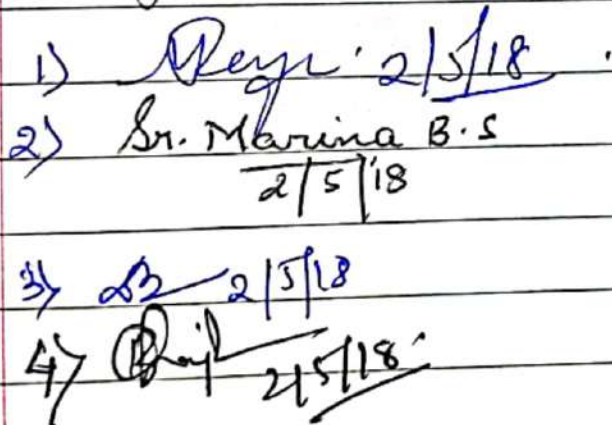 1) 2/5/18
2) Sr. Marina B.S
2/5/18
3) 2/5/18
4) 2/5/18